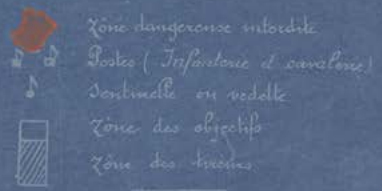 Zône dangereuse interdite
Postes ( Infanterie et cavalerie)
Sentinelle ou vedette
Zône des objectifs
Zône des tireurs